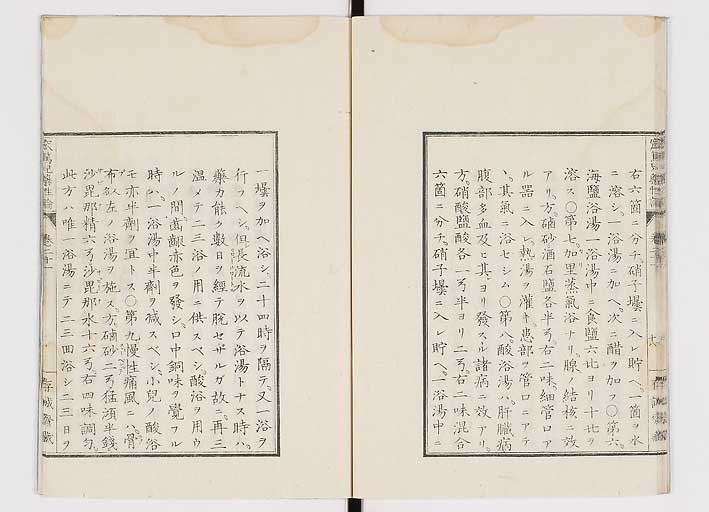 右六箇ニ分チ。硝子壜ニ入レ貯ヘ。一箇ヲ水
ニ溶シ。一浴湯ニ加ヘ。次ニ醋ヲ加フ〇第六。
海鹽浴湯一浴湯中ニ食鹽六比ヨリ十比ヲ
溶ス〇第七。加里蒸氣浴ナリ。腺ノ結核ニ效
アリ。方。硇砂酒石鹽各半丂。右二味。細管口ア
ル器ニ入レ熱湯ヲ灌キ。患部ヲ管口ニアテ
丶。其氣ニ浴セシム〇第八。酸浴湯ハ。肝臟病
腹部多血及ヒ其ヨリ發スル諸病ニ效アリ。
方。硝酸鹽酸各一丂半ヨリ二丂。右二味混合
六箇ニ分チ。硝子壜ニ入レ貯ヘ。一浴湯中ニ
一壜ヲ加ヘ浴シ。二十四時ヲ隔テ。又一浴ヲ
行フヘシ。但長流水ヲ以テ浴湯トナス時ハ。
藥力能ク數日ヲ經テ脫セザルガ故ニ。再三
溫メテ二三浴ノ用ニ供スベシ。酸浴ヲ用ウ
ルノ間。齒齦赤色ヲ發シ。口中銅味ヲ覺フル
時ハ。一浴湯中半劑ヲ減スベシ。小兒ノ酸浴
モ亦半劑ヲ宜トス〇第九慢性痛風ニハ。骨
布欽左ノ浴湯ヲ施ス。方。硇砂二丂
沙毘那精六丂沙毘那水十六丂右四味調匀。
此方ハ唯一浴湯ニテ二三回浴シ二三日ヲ